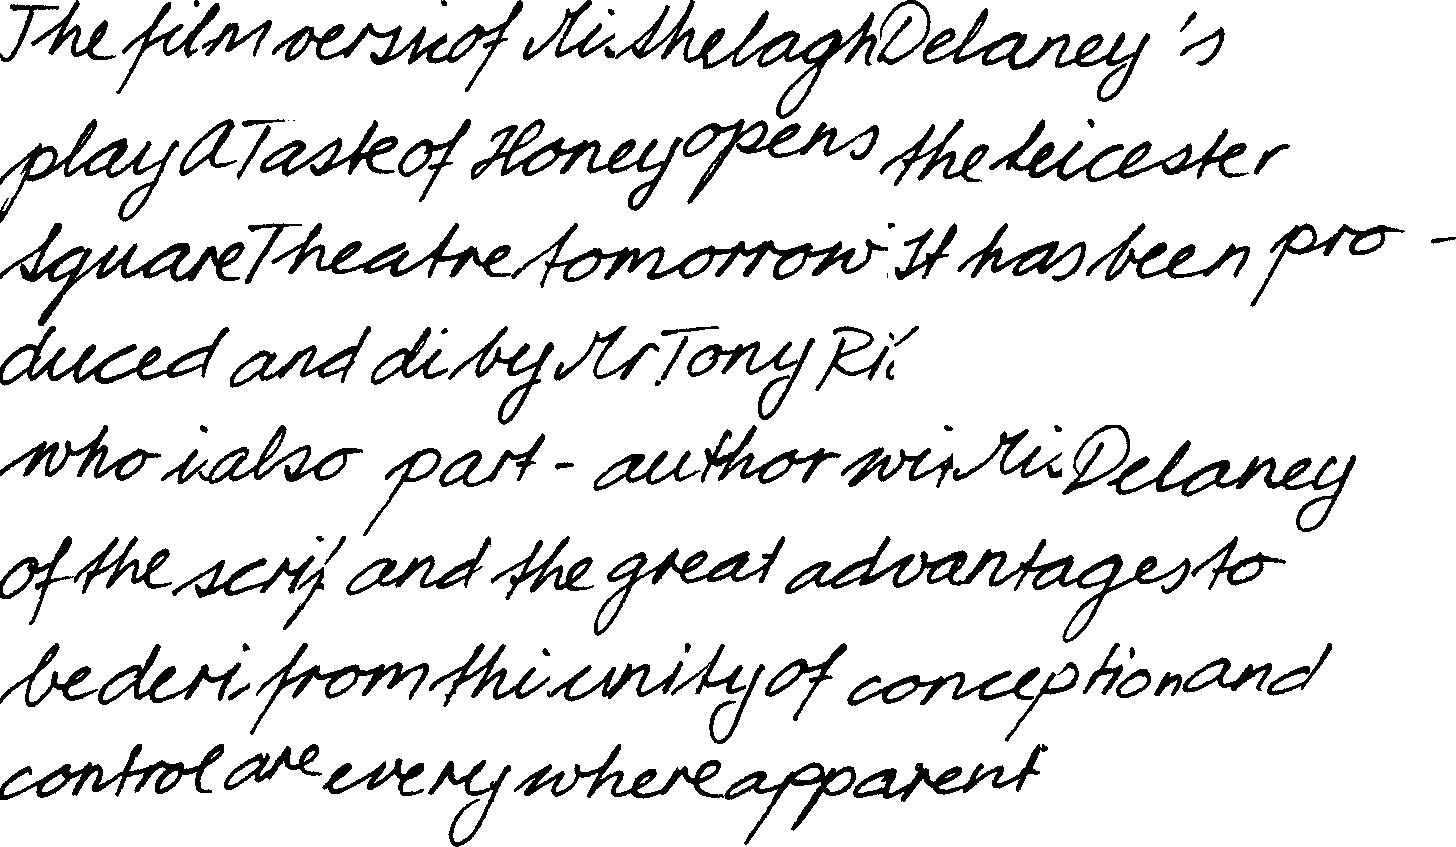 The film versi of Mi. Shelagh Delaney's
play A Taste of Honey opens the Leicester
Square Theatre tomorrow. It has been pro-
duced and di by Mr. Tony Ri.
who i. also part-author wi. Mi. Delaney
of the scri, and the great advantages to
be deri. from thi. unity of conception and
control are everywhere apparent